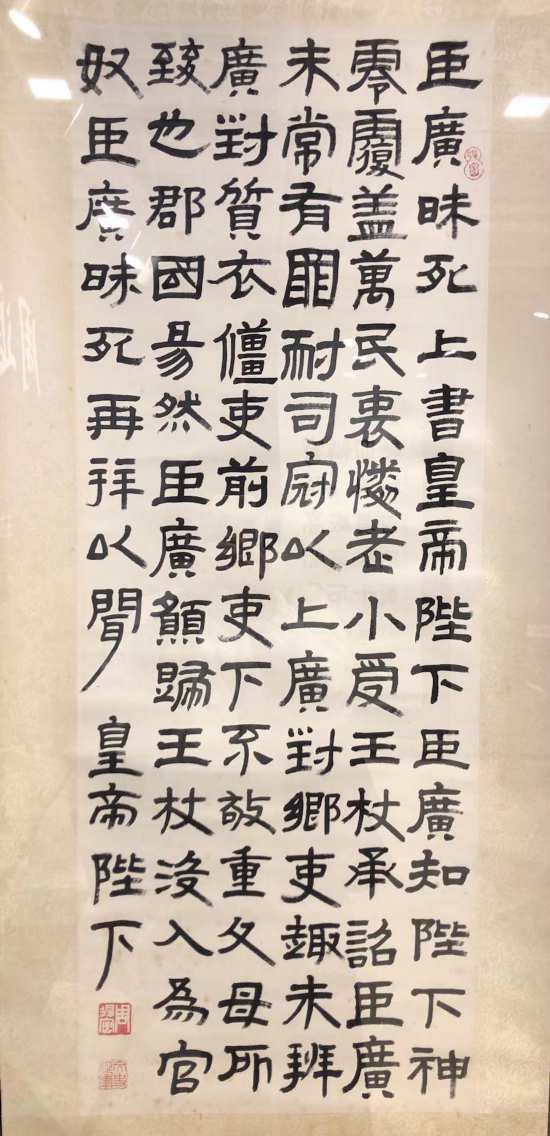 臣廣昧死上書皇帝陛下臣廣知陛下神
零覆盖萬民哀憐老小受王杖承詔臣廣
未常有罪耐司寇以上廣對鄉吏趣未辨
廣對質衣僵吏前鄉吏下不敬重父母所
致也郡國易然臣廣願歸王杖沒入為官
奴臣廣昧死再拜以聞皇帝陛下